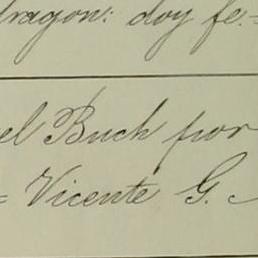 dragon: doy fe.=
el Buch por
= Vicente G.